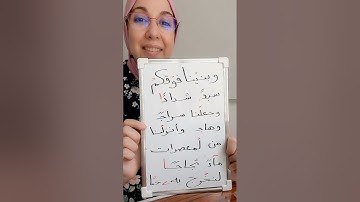 وبنينا فوقكم
سبعًا شدادًا
وجعلنا سراجًا
وهاجًا وأنزلنا
من لمعصرات
ماءً ثجاجًا
لنخرج به حبًّا